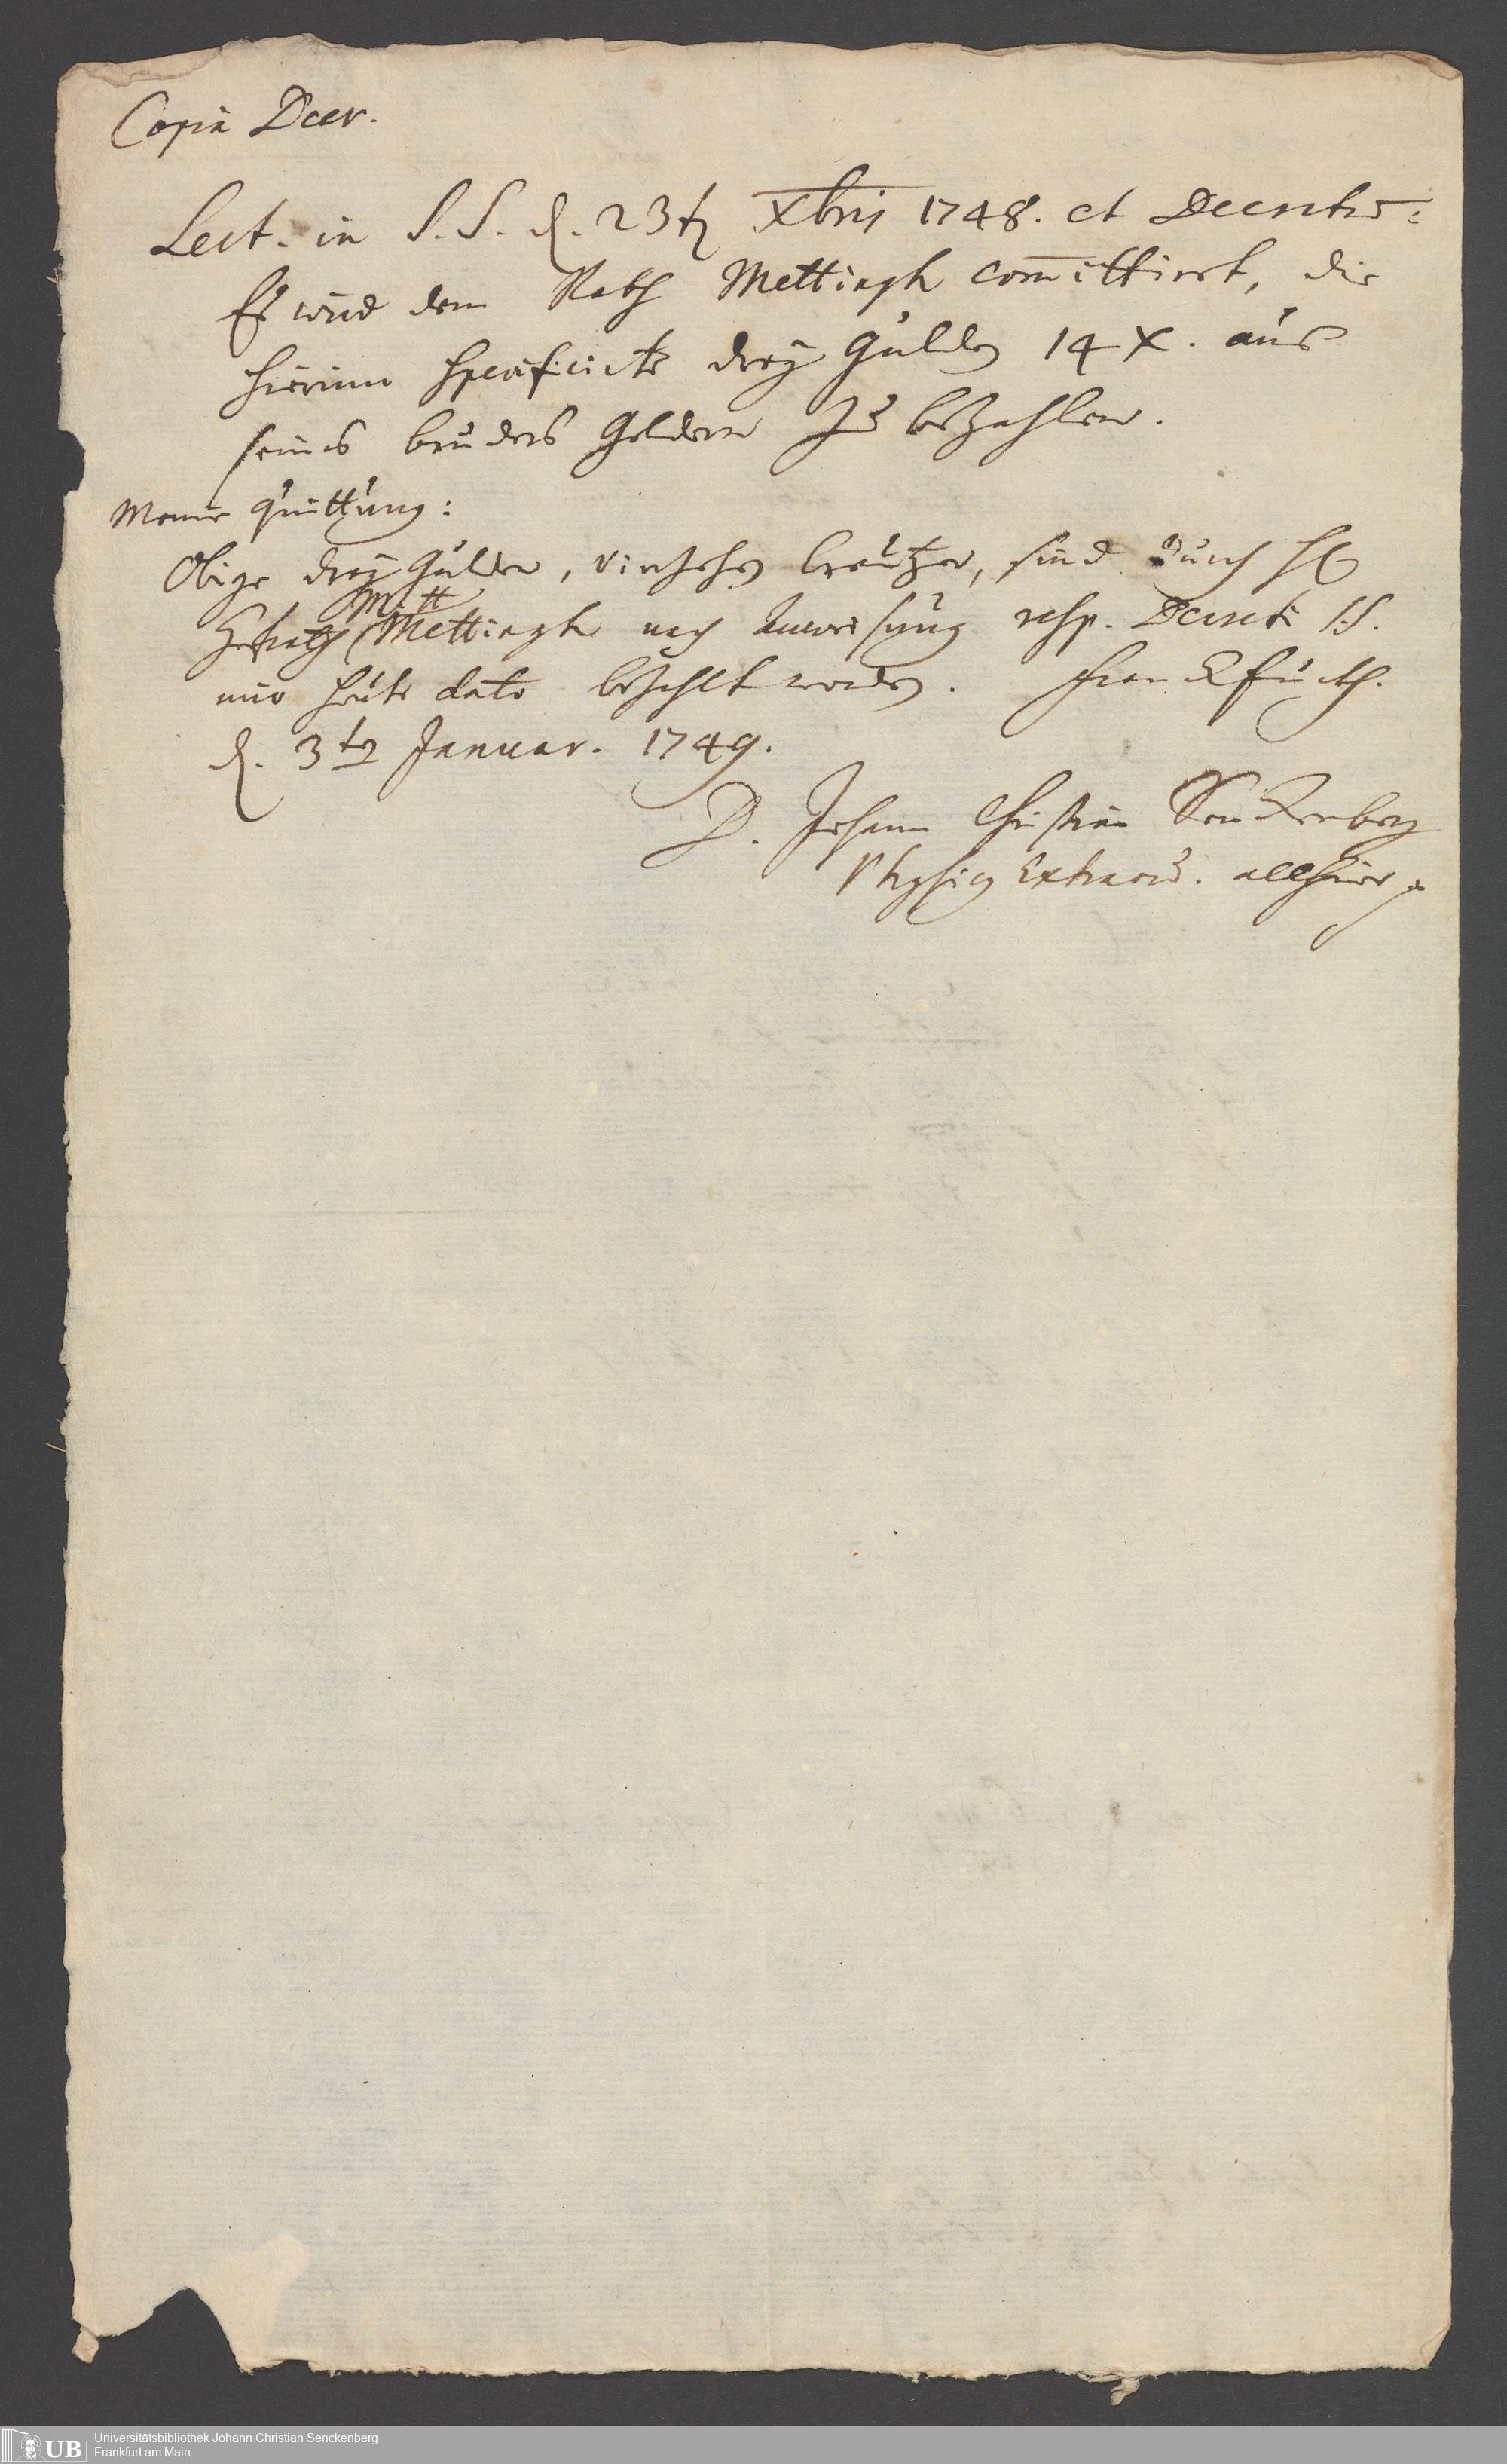 Copia Decr.
Lect. in S. S. d. 23tz Xbris 1748. et Decretum:
Es wird dem Rath Mettingh committirt, die
hierinn specificirte drey Gulden 14 X. aus
seines bruders Geldern zu bezahlen.
Meine Quittung:
Obige drey Gulden, vierzehn Creutzer, sind durch H
Mettingh nach Anweisung resp. Decreti S.S.
mir heute dato bezahlt worden. Franckfurth.
d. 3ten Januar. 1749.
D. Johann Christian Senckenberg
Physicus Extraord. allhier
Universitätsbibliothek Johann Christian Senckenberg
Frankfurt am Main
UB